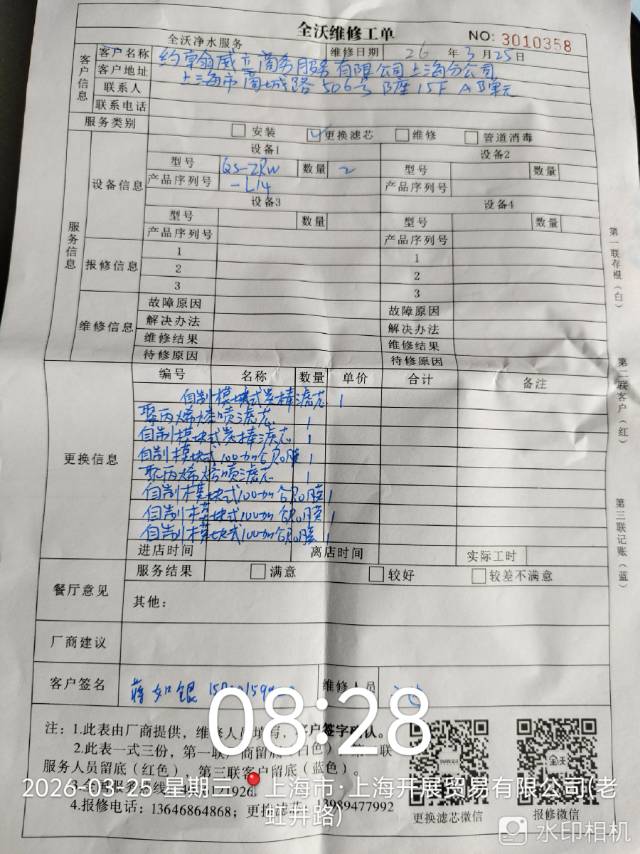 全沃维修工单
全沃净水服务 维修日期 26 年 3 月 25 日 NO: 3010358
客户信息
客户名称 有限公司上海分公司
客户地址 上海市商城路506号B座15F AB单元
联系人
联系电话
服务类别 安装 更换滤芯 维修 管道消毒
服务信息
设备信息
设备1 设备2
型号 QS-ZRW 数量 2 型号 数量
产品序列号 -L14 产品序列号
设备3 设备4
型号 数量 型号 数量
产品序列号 产品序列号
报修信息
1 1
2 2
3 3
维修信息
故障原因 故障原因
解决办法 解决办法
维修结果 维修结果
待修原因 待修原因
更换信息
编号 名称 数量 单价 合计 备注
自制模块式炭棒滤芯 1
聚丙烯熔喷滤芯 1
自制模块式炭棒滤芯 1
自制模块式100加仑RO膜 1
聚丙烯熔喷滤芯 1
自制模块式100加仑RO膜 1
自制模块式100加仑RO膜 1
自制模块式100加仑RO膜 1
进店时间 离店时间 实际工时
餐厅意见
服务结果 满意 较好 较差不满意
其他:
厂商建议
客户签名 蒋如银 维修人员
第一联存根(白)
第二联客户(红)
第三联记账(蓝)
注：1.此表由厂商提供，维修人员填写，客户签字确认。
2.此表一式三份，第一联厂商留底（白色），第二联
服务人员留底（红色），第三联客户留底（蓝色）。
4.报修电话：13646864868；更换滤芯：13989477992
更换滤芯微信 报修微信
全沃
08:28
2026-03-25 星期三 上海市·上海开展贸易有限公司(老
虹井路)
水印相机